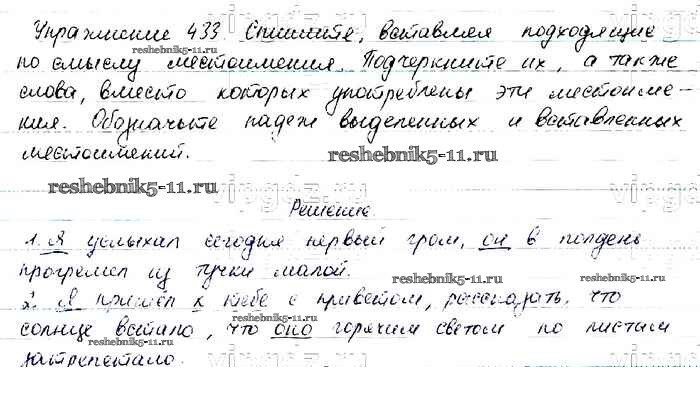 Упражнение 433. Спишите, вставляя подходящие
reshebnik5-11.ru
по смыслу местоимения. Подчеркните их, а также
слова, вместо которых употреблены эти местоиме-
ния. Обозначьте падеж выделенных и вставленных
местоимений.
reshebnik5-11.ru
reshebnik5-11.ru
Решение.
1. Я услыхал сегодня первый гром, он в полдень
прогремел из тучки малой.
reshebnik5-11.ru
2. Я пришёл к тебе с приветом, рассказать, что
солнце встало, что оно горячим светом по листам
reshebnik5-11.ru
затрепетало.